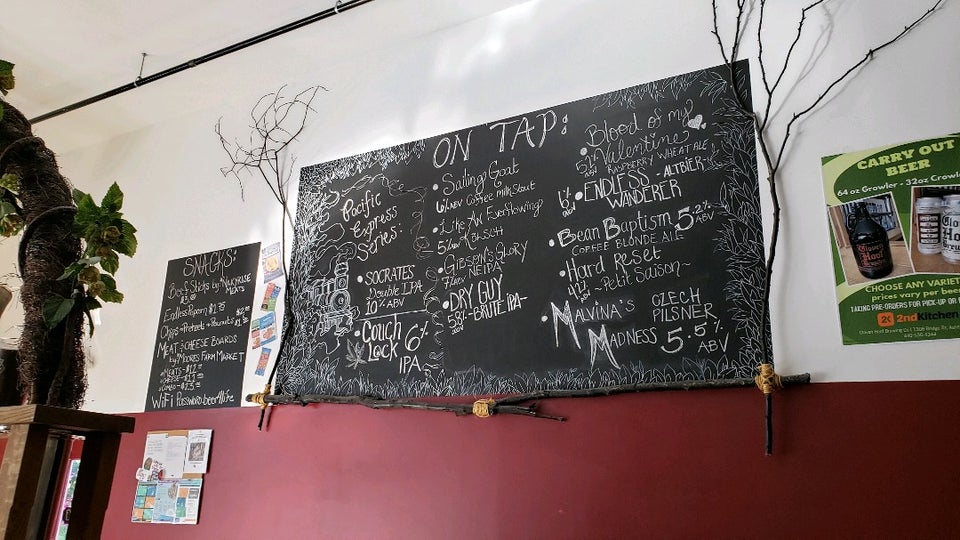 SNACKS:
Beef Sticks by
Meats
Endless Popcorn
Chips
MEAT & CHEESE BOARDS
by MOORES FARM MARKET
MEATS
CHEESE
COMBO
WiFi Password: beer4life
ON TAP:
Pacific
Express
Series:
SOCRATES
Double IPA
10% ABV
Couch 6%
Lock IPA
Sailing Goat
ABV Coffee Milk Stout
Like An Everflowing
5% ABV KOLSCH
GIBSON'S GLORY
NEIPA
DRY GUY
BRUTE IPA
Blood of my
Valentine
RASPBERRY WHEAT ALE
6% ENDLESS - ALTBIER
ABV WANDERER
Bean Baptism 5.2% ABV
COFFEE BLONDE ALE
Hard Reset
-Petit Saison-
MALVINA'S CZECH
PILSNER
MADNESS 5.5%
ABV
CARRY OUT
BEER
64 oz Growler - 32oz
CHOOSE ANY VARIET
prices vary per bee
TAKING PRE-ORDERS FOR PICK-UP OR
2ndKitchen